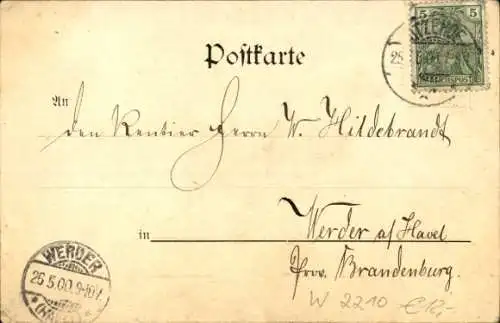 5 5
REICHSPOST
25
Postkarte
An
den Rentier Herrn W. Hildebrandt
in Werder a/Havel
Prov. Brandenburg.
WERDER
26 5.00. 9-10 V.
(HAVEL)
W 2210